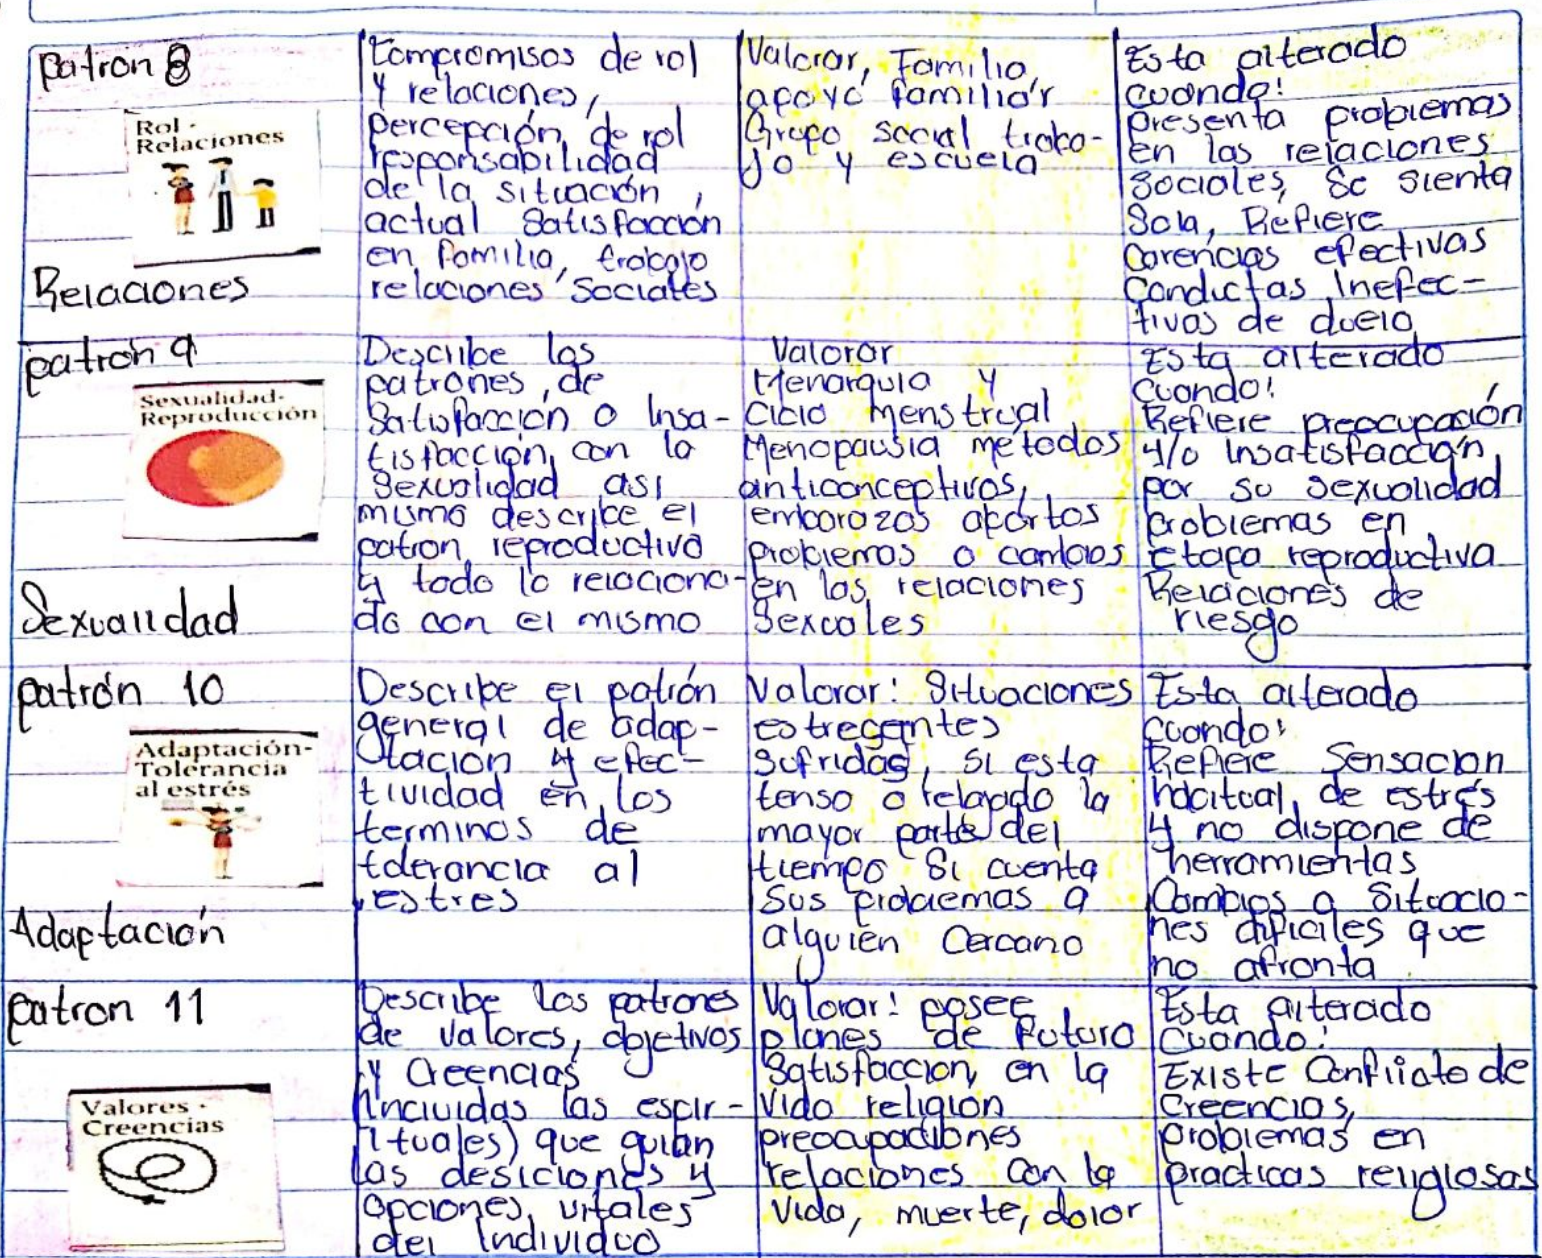 patron 8
Rol -
Relaciones
Relaciones
Compromisos de rol
y relaciones,
percepción de rol
responsabilidad
de la situación,
actual Satisfacción
en familia, trabajo
relaciones Sociales
Valorar, Familia,
apoyo familiar
Grupo social traba-
jo y escuela
Esta alterado
cuando:
presenta problemas
en las relaciones
Sociales, Se sienta
Sola, Refiere
Carencias efectivas
Conductas Inefec-
tivas de duelo
patrón 9
Sexualidad-
Reproducción
Sexualidad
Describe los
patrones, de
Satisfacción o Insa-
tisfacción, con la
Sexualidad asi
mismo describe el
patron reproductivo
y todo lo relaciona-
do con el mismo
Valorar
Menarquia y
Ciclo menstrual
Menopausia métodos
anticonceptivos,
embarazos abortos
problemas o cambios
en las relaciones
Sexuales
Esta alterado
cuando:
Refiere preocupación
y/o Insatisfacción,
por su sexualidad
problemas en
etapa reproductiva
Relaciones de
riesgo
patrón 10
Adaptación-
Tolerancia
al estrés
Adaptación
Describe el patrón
general de adap-
tacion y efec-
tividad en los
terminos de
tolerancia al
estres
Valorar: Situaciones
estresantes
Sufridas, si esta
tenso o relajado la
mayor parte del
tiempo Si cuenta
Sus problemas a
alguien Cercano
Esta alterado
cuando:
Refiere Sensacion
habitual, de estrés
y no dispone de
herramientas
Cambios a Situacio-
nes dificiles que
no afronta.
patron 11
Valores -
Creencias
Describe Los patrones
de valores, objetivos
y Creencias
(incluidas las espir-
ituales) que guian
las desiciones y
opciones, vitales
del Individuo
Valorar: posee
planes de futuro
Satisfaccion en la
vida religion
preocupaciones
relaciones con la
vida, muerte, dolor
Esta alterado
Cuando:
Existe Confliato de
Creencias,
problemas en
practicas religiosas